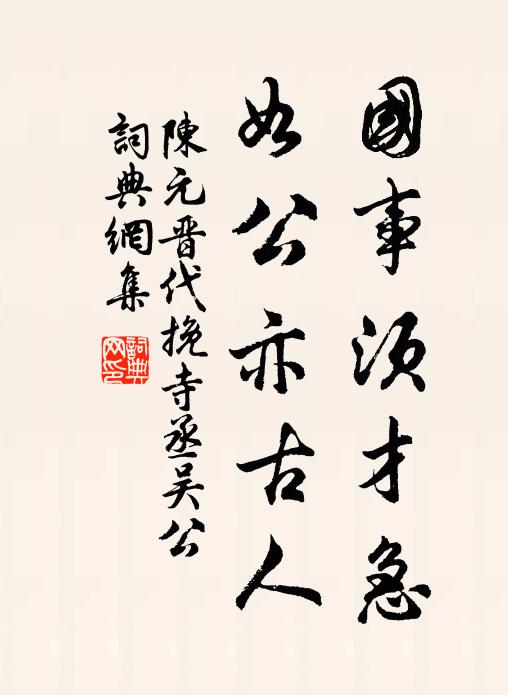 國事須才急
如公亦古人
陳元晋代挽寺丞吳公
詞典網集
詞典網印